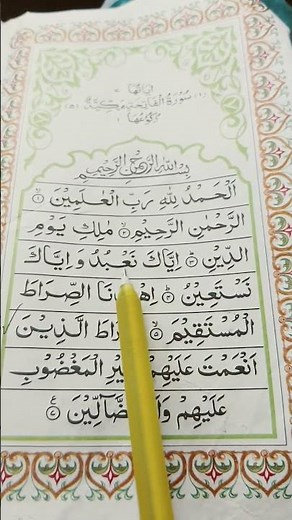 سُوْرَةُ الْفَاتِحَةِ مَكِّيَّةٌ (۵)
رُكُوْعُهَا ۱
بِسْمِ اللهِ الرَّحْمٰنِ الرَّحِيْمِ
اَلْحَمْدُ لِلّٰهِ رَبِّ الْعٰلَمِيْنَ ۱
الرَّحْمٰنِ الرَّحِيْمِ ۲ مٰلِكِ يَوْمِ
الدِّيْنِ ۳ اِيَّاكَ نَعْبُدُ وَ اِيَّاكَ
نَسْتَعِيْنُ ۴ الصِّرَاطَ
الْمُسْتَقِيْمَ ۵ الَّذِيْنَ
اَنْعَمْتَ عَلَيْهِمْ الْمَغْضُوْبِ
عَلَيْهِمْ ۷